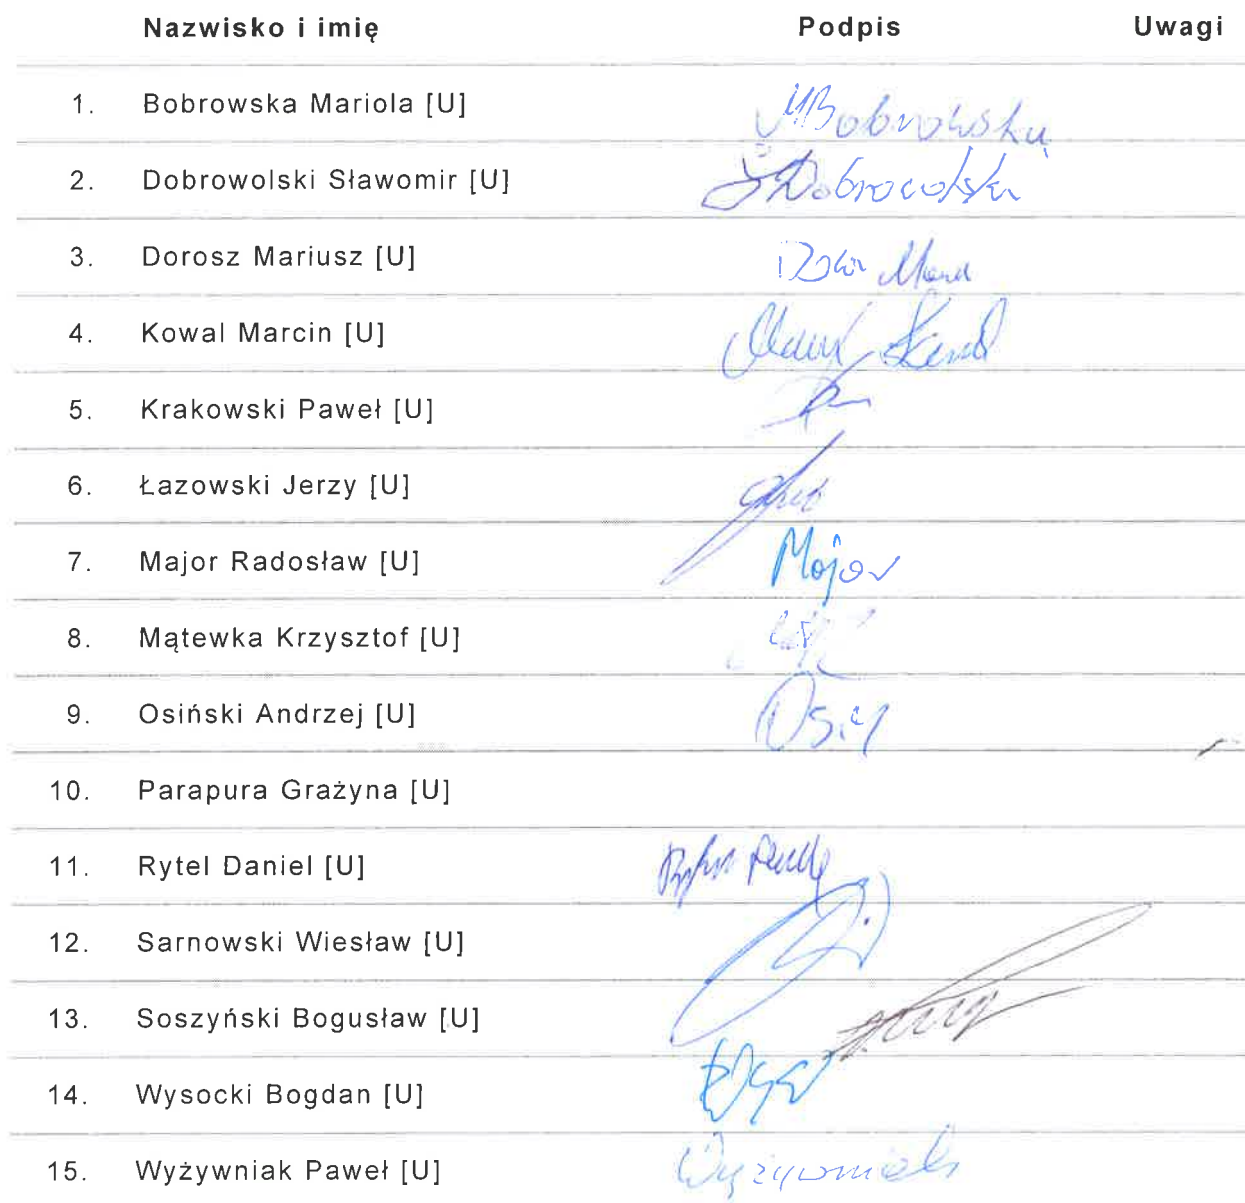 Nazwisko i imię Podpis Uwagi
1. Bobrowska Mariola [U] MBobrowska
2. Dobrowolski Sławomir [U] SDobrowolski
3. Dorosz Mariusz [U]
4. Kowal Marcin [U]
5. Krakowski Paweł [U]
6. Łazowski Jerzy [U]
7. Major Radosław [U] Major
8. Mątewka Krzysztof [U]
9. Osiński Andrzej [U]
10. Parapura Grażyna [U]
11. Rytel Daniel [U]
12. Sarnowski Wiesław [U]
13. Soszyński Bogusław [U]
14. Wysocki Bogdan [U]
15. Wyżywniak Paweł [U] Wyżywniak